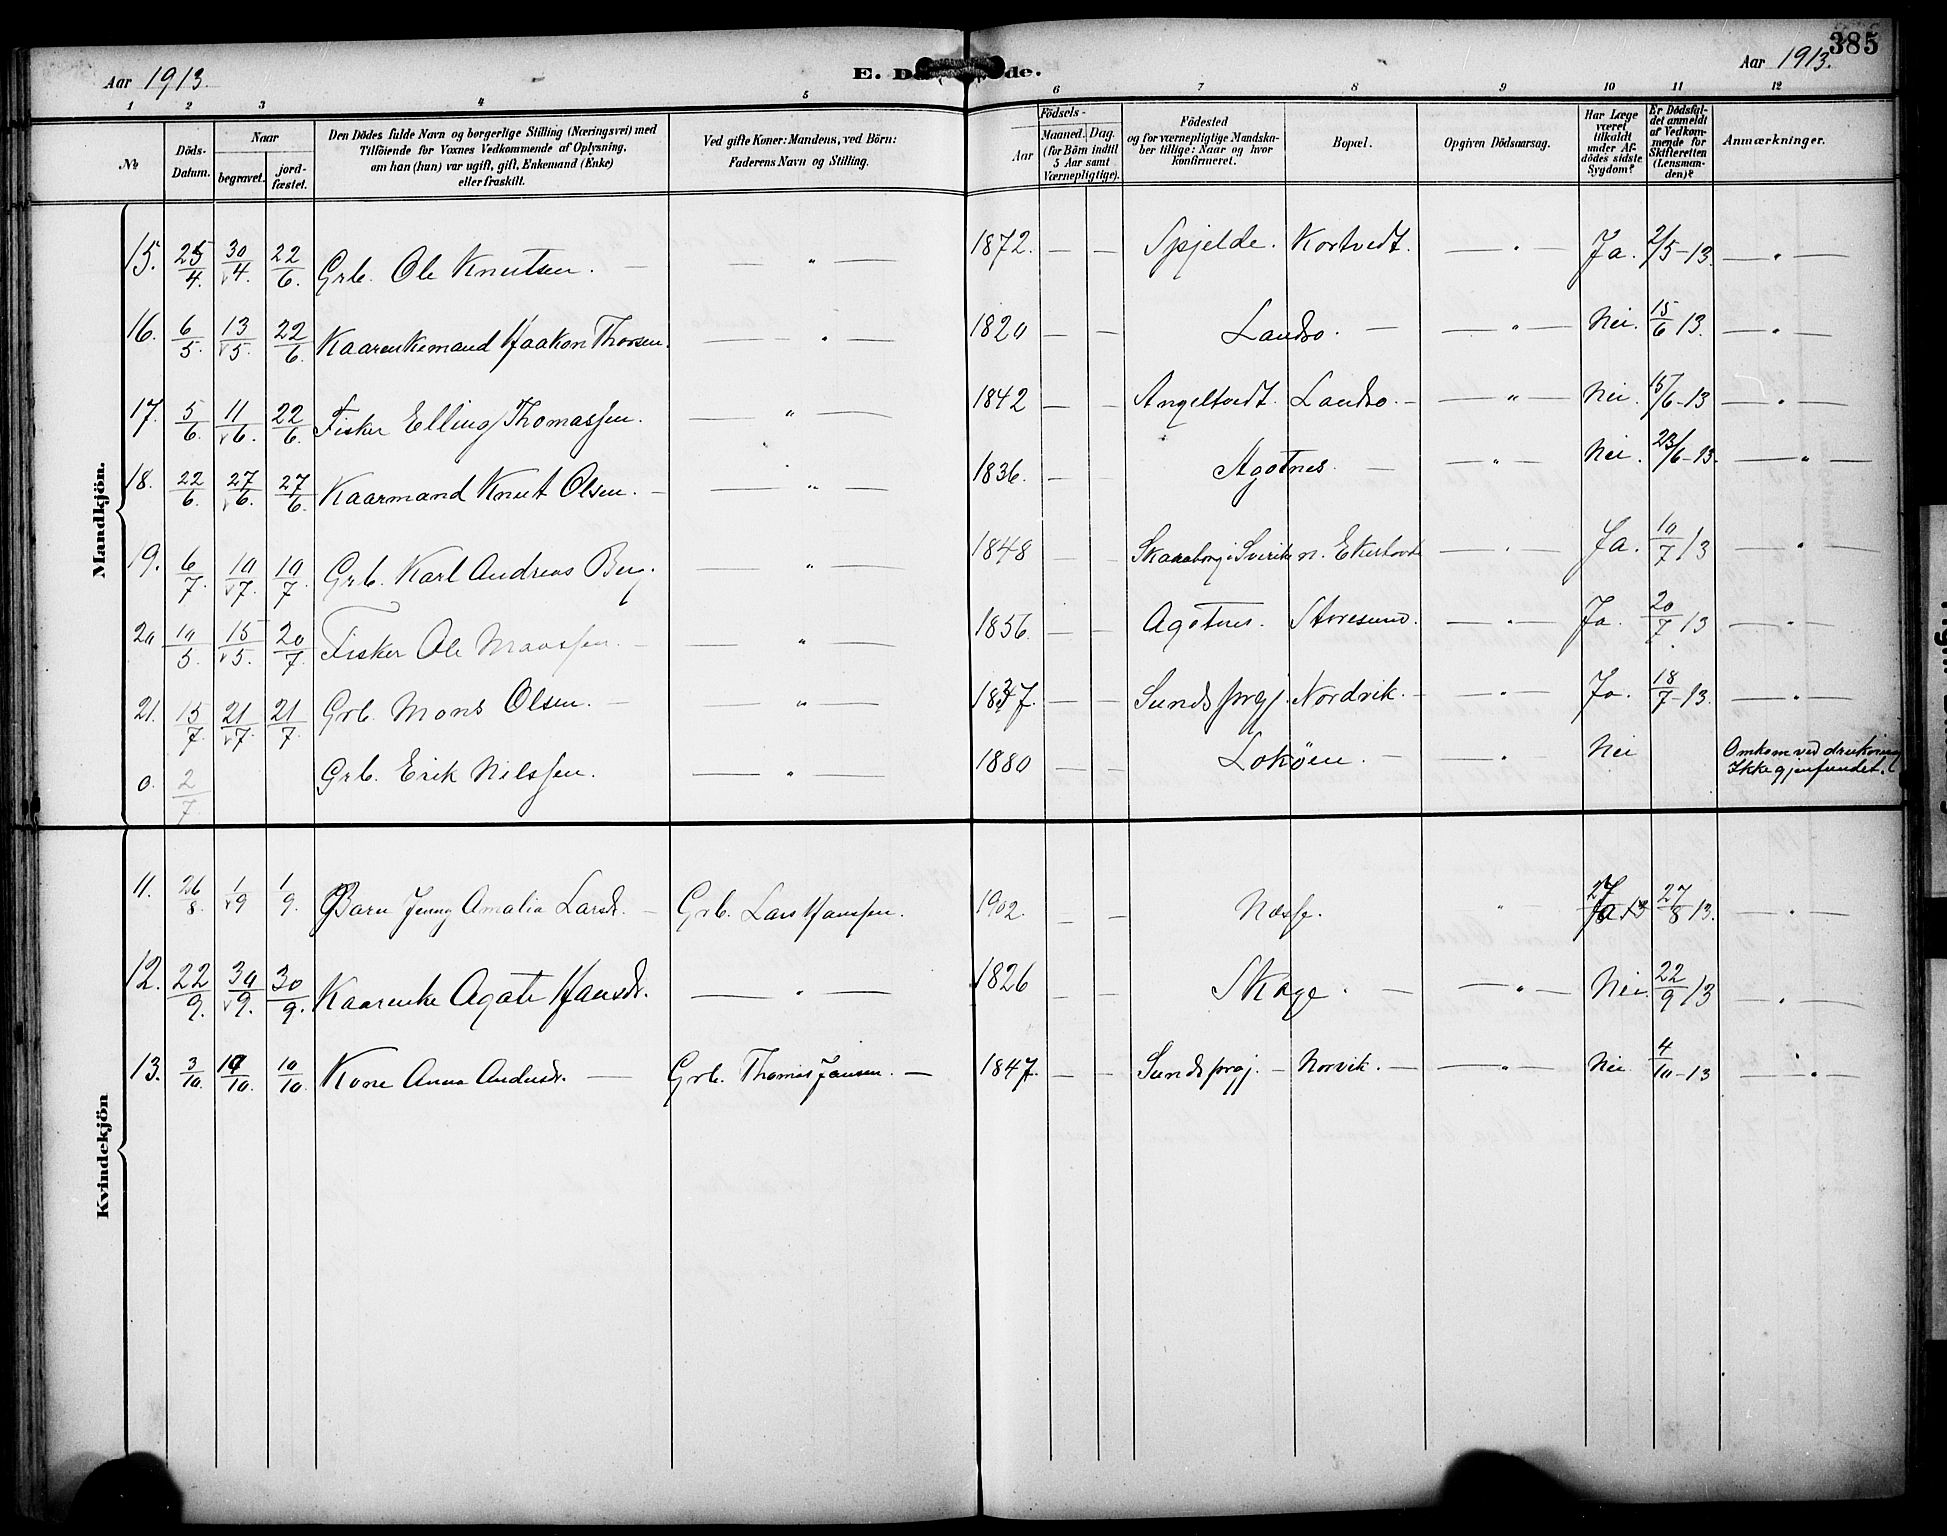 385
Aar 1913.
E. D de.
Aar 1913.
1 2 3 4 5 6 7 8 9 10 11 12
№
Döds-Datum.
Naar
begravet.
jord-fæstet.
Den Dödes fulde Navn og borgerlige Stilling (Næringsvei) med
Tilföiende for Voxnes Vedkommende af Oplysning,
om han (hun) var ugift, gift, Enkemand (Enke)
eller fraskilt.
Ved gifte Koner: Mandens, ved Börn:
Faderens Navn og Stilling.
Födsels-
Aar
Maaned. Dag.
(for Börn indtil
5 Aar samt
Værnepligtige).
Födested
og for værnepligtige Mandska-
ber tillige: Naar og hvor
konfirmeret.
Bopæl.
Opgiven Dödsaarsag.
Har Læge
været
tilkaldt
under Af-
dödes sidste
Sygdom?
Er Dödsfal-
det anmeldt
af Vedkom-
mende for
Skifteretten
(Lensman-
den)?
Anmærkninger.
Mandkjön.
15. 25/4. 30/4. 22/6. Grb. Ole Knutsen. — — „ — 1872. — — Spjelde. Kortvedt. — „ — Ja. 2/5-13. — „ —
16. 6/5. 13/5. 22/6 Kaarenkemand Haakon Thorsen. — „ — 1820 — — Landro. — — „ — Nei. 15/6 13. — „ —
17. 5/6. 11/6. 22/6. Fisker Elling Thomassen. — „ — 1842 — — Angeltvedt. Landro. — — „ — Nei. 15/6-13 — „ —
18. 22/6. 27/6. 27/6. Kaarmand Knut Olsen. — — „ — 1836. — Agotnes. — — „ — Nei. 23/6-13. — „ —
19. 6/7. 10/7. 10/7. Grb. Karl Andreas Berg. — „ — 1848 — — Skaraborg i Sverike n. Ekerhovd — „ — Ja. 10/7 13 — „ —
20 10/5. 15/5. 20/7. Fisker Ole Monssen. — — „ — 1856. — — Agotnes. Storesund. — „ — Ja. 20/7 13 — „ —
21. 15/7. 21/7. 21/7. Grb. Mons Olsen. — — „ — 1837. — — Sunds prgj. Nordvik. — — „ — Ja. 18/7-13. — „ —
0. 2/7 Grb. Erik Nilssen. — „ — 1880 — — Lokøen. — — „ — Nei Omkom ved drukning
Ikke gjenfundet.
Kvindekjön
11. 26/8. 1/9 1/9. Barn Jenny Amalia Larsdr. — Grb. Lars Hanssen. 1902. — — Næsse. „ Ja 27/8 13. — „ —
12. 22/9. 30/9. 30/9. Kaarenke Agate Hansdr. — „ — 1826 — — Skoge. — — „ — Nei. 22/9 13 — „ —
13. 3/10. 10/10. 10/10. Kone Anna Andersdr. — Grb. Thomas Jansen. — 1847. — — Sunds prgj. — Norvik. — — „ — Nei 4/10-13 — „ —